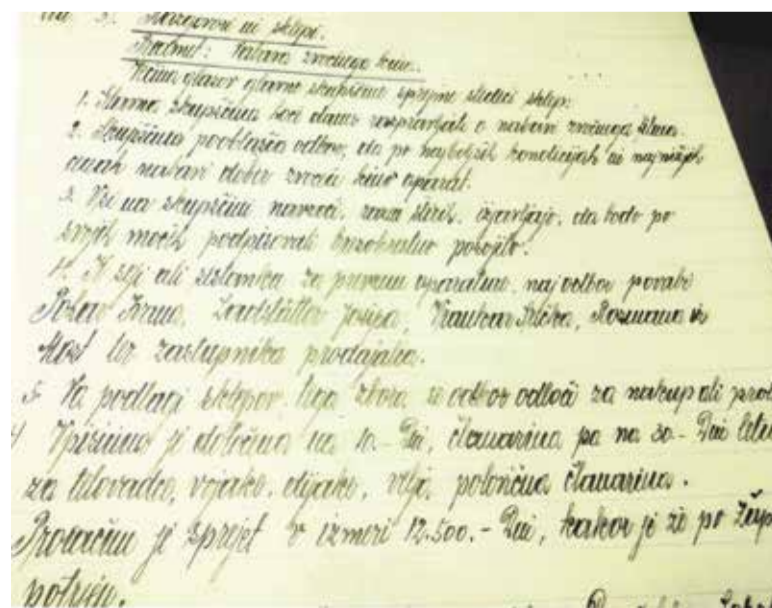 3. Razgovori in sklepi.
Predmet: Nabava zvočnega kina.
Večina glasov glavne skupščine sprejme sledeči sklep:
1. Glavna skupščina hoče danes razpravljati o nabavi zvočnega kina.
2. Skupščina pooblašča odbor, da po najboljših kondicijah in najnižjih
cenah nabavi dober zvočni kino aparat.
3. Vsi na skupščini navzoči, razen štirih, izjavljajo, da bodo po
svojih močeh podpisovali brezobrestno posojilo.
4. K seji ali sestanku za prevzem aparature, naj odbor povabi
Ivana, Josipa, Rozmana iz
Most ter zastopnika prodajalca.
5. Na podlagi sklepov tega zbora se odbor odloči za nakup ali proti
Vpisnina je določena na 10.- Din, članarina pa na 30.- Din letno
za telovadce, vojake, dijake, velja polovična članarina.
Proračun je sprejet v izmeri 12.500.- Din, kakor je že po
potrjen.